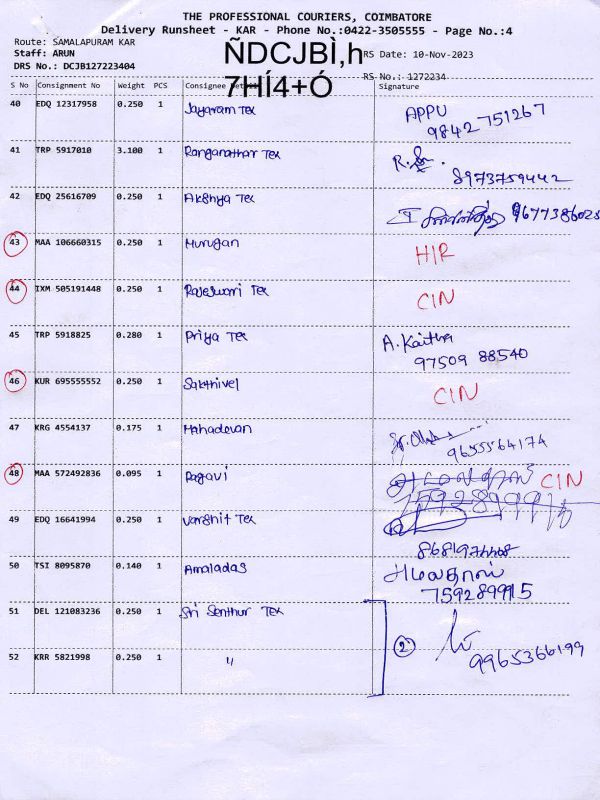 THE PROFESSIONAL COURIERS, COIMBATORE
Delivery Runsheet - KAR - Phone No.:0422-3505555 - Page No.:4
Route: SAMALAPURAM KAR
Staff: ARUN
ÑDCJBÌ,h
RS Date: 10-Nov-2023
DRS No.: DCJB127223404
7HÍ4+Ó
RS No.: 1272234
S No Consignment No Weight PCS Consignee Signature
40 EDQ 12317958 0.250 1 Jayaram Tex APPU
9842751267
41 TRP 5917010 3.100 1 Ranganathar Tex
8973759442
42 EDQ 25616709 0.250 1 Akshya Tex 9677386025
43 MAA 106660315 0.250 1 Murugan HIR
44 IXM 505191448 0.250 1 Rajeswari Tex CIN
45 TRP 5918825 0.280 1 Priya Tex A. Kaitha
97509 88540
46 KUR 695555552 0.250 1 Sakthivel CIN
47 KRG 4554137 0.175 1 Mahadevan
9655564174
48 MAA 572492836 0.095 1 Ragavi CIN
49 EDQ 16641994 0.250 1 Varshit Tex
50 TSI 8095870 0.140 1 Amaladas
759289915
51 DEL 121083236 0.250 1 Sri Senthur Tex
2
9965366199
52 KRR 5821998 0.250 1 "